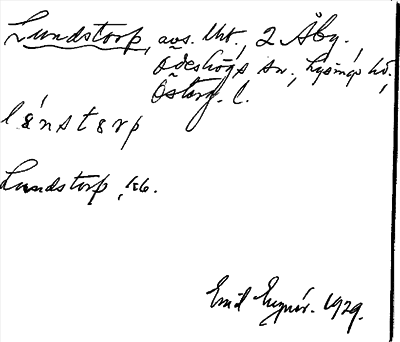 Lundstorp, avs. Uht, 2 Åby,
Ödeshögs sn., Lysings hd.,
Österg. l.
lǽnstɛrp
Lundstorp, Kb.
Emil Engnér. 1929.